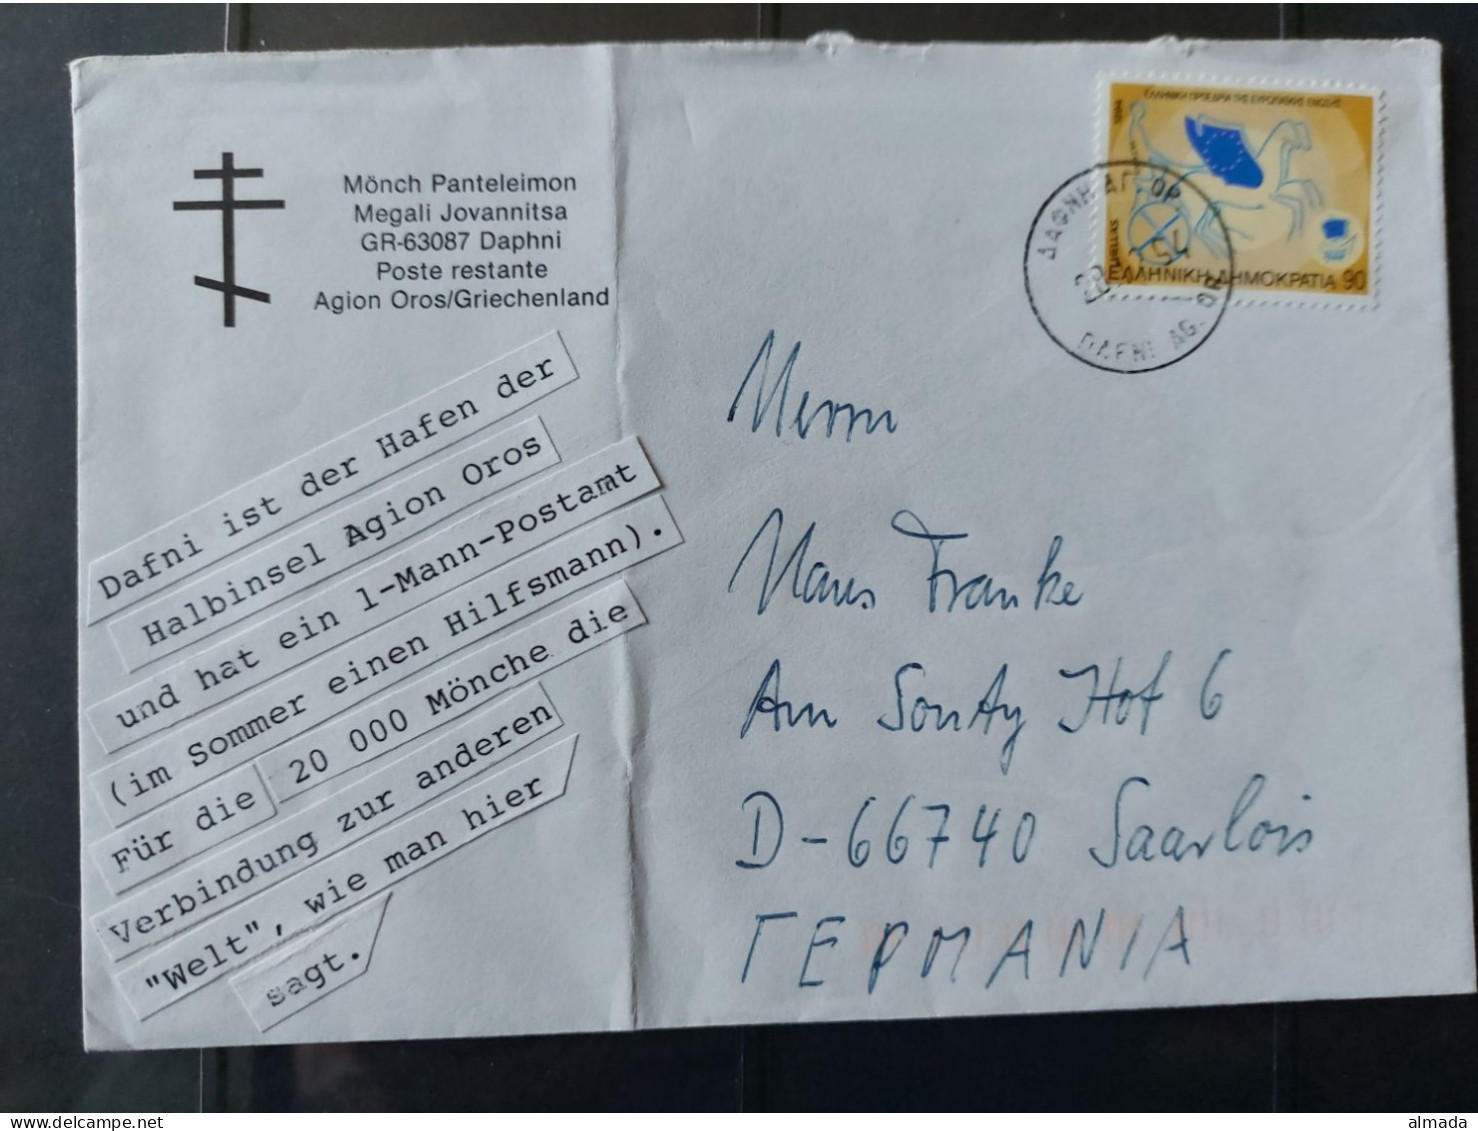 Mönch Panteleimon
Megali Jovannitsa
GR-63087 Daphni
Poste restante
Agion Oros/Griechenland
Dafni ist der Hafen der
Halbinsel Agion Oros
und hat ein 1-Mann-Postamt
(im Sommer einen Hilfsmann).
Für die 20 000 Mönche die
Verbindung zur anderen
"Welt", wie man hier
sagt.
ΕΛΛΗΝΙΚΗ ΠΡΟΕΔΡΙΑ ΤΗΣ ΕΥΡΩΠΑΪΚΗΣ ΕΝΩΣΗΣ
1994
HELLAS
ΕΛΛΗΝΙΚΗ ΔΗΜΟΚΡΑΤΙΑ 90
ΔΑΦΝΗ ΑΓ. ΟΡ
DAFNI AG. OR
Herrn
Hans Franke
Am Sonty Hof 6
D-66740 Saarlois
ΓΕΡMANIA
almada
delcampe.net